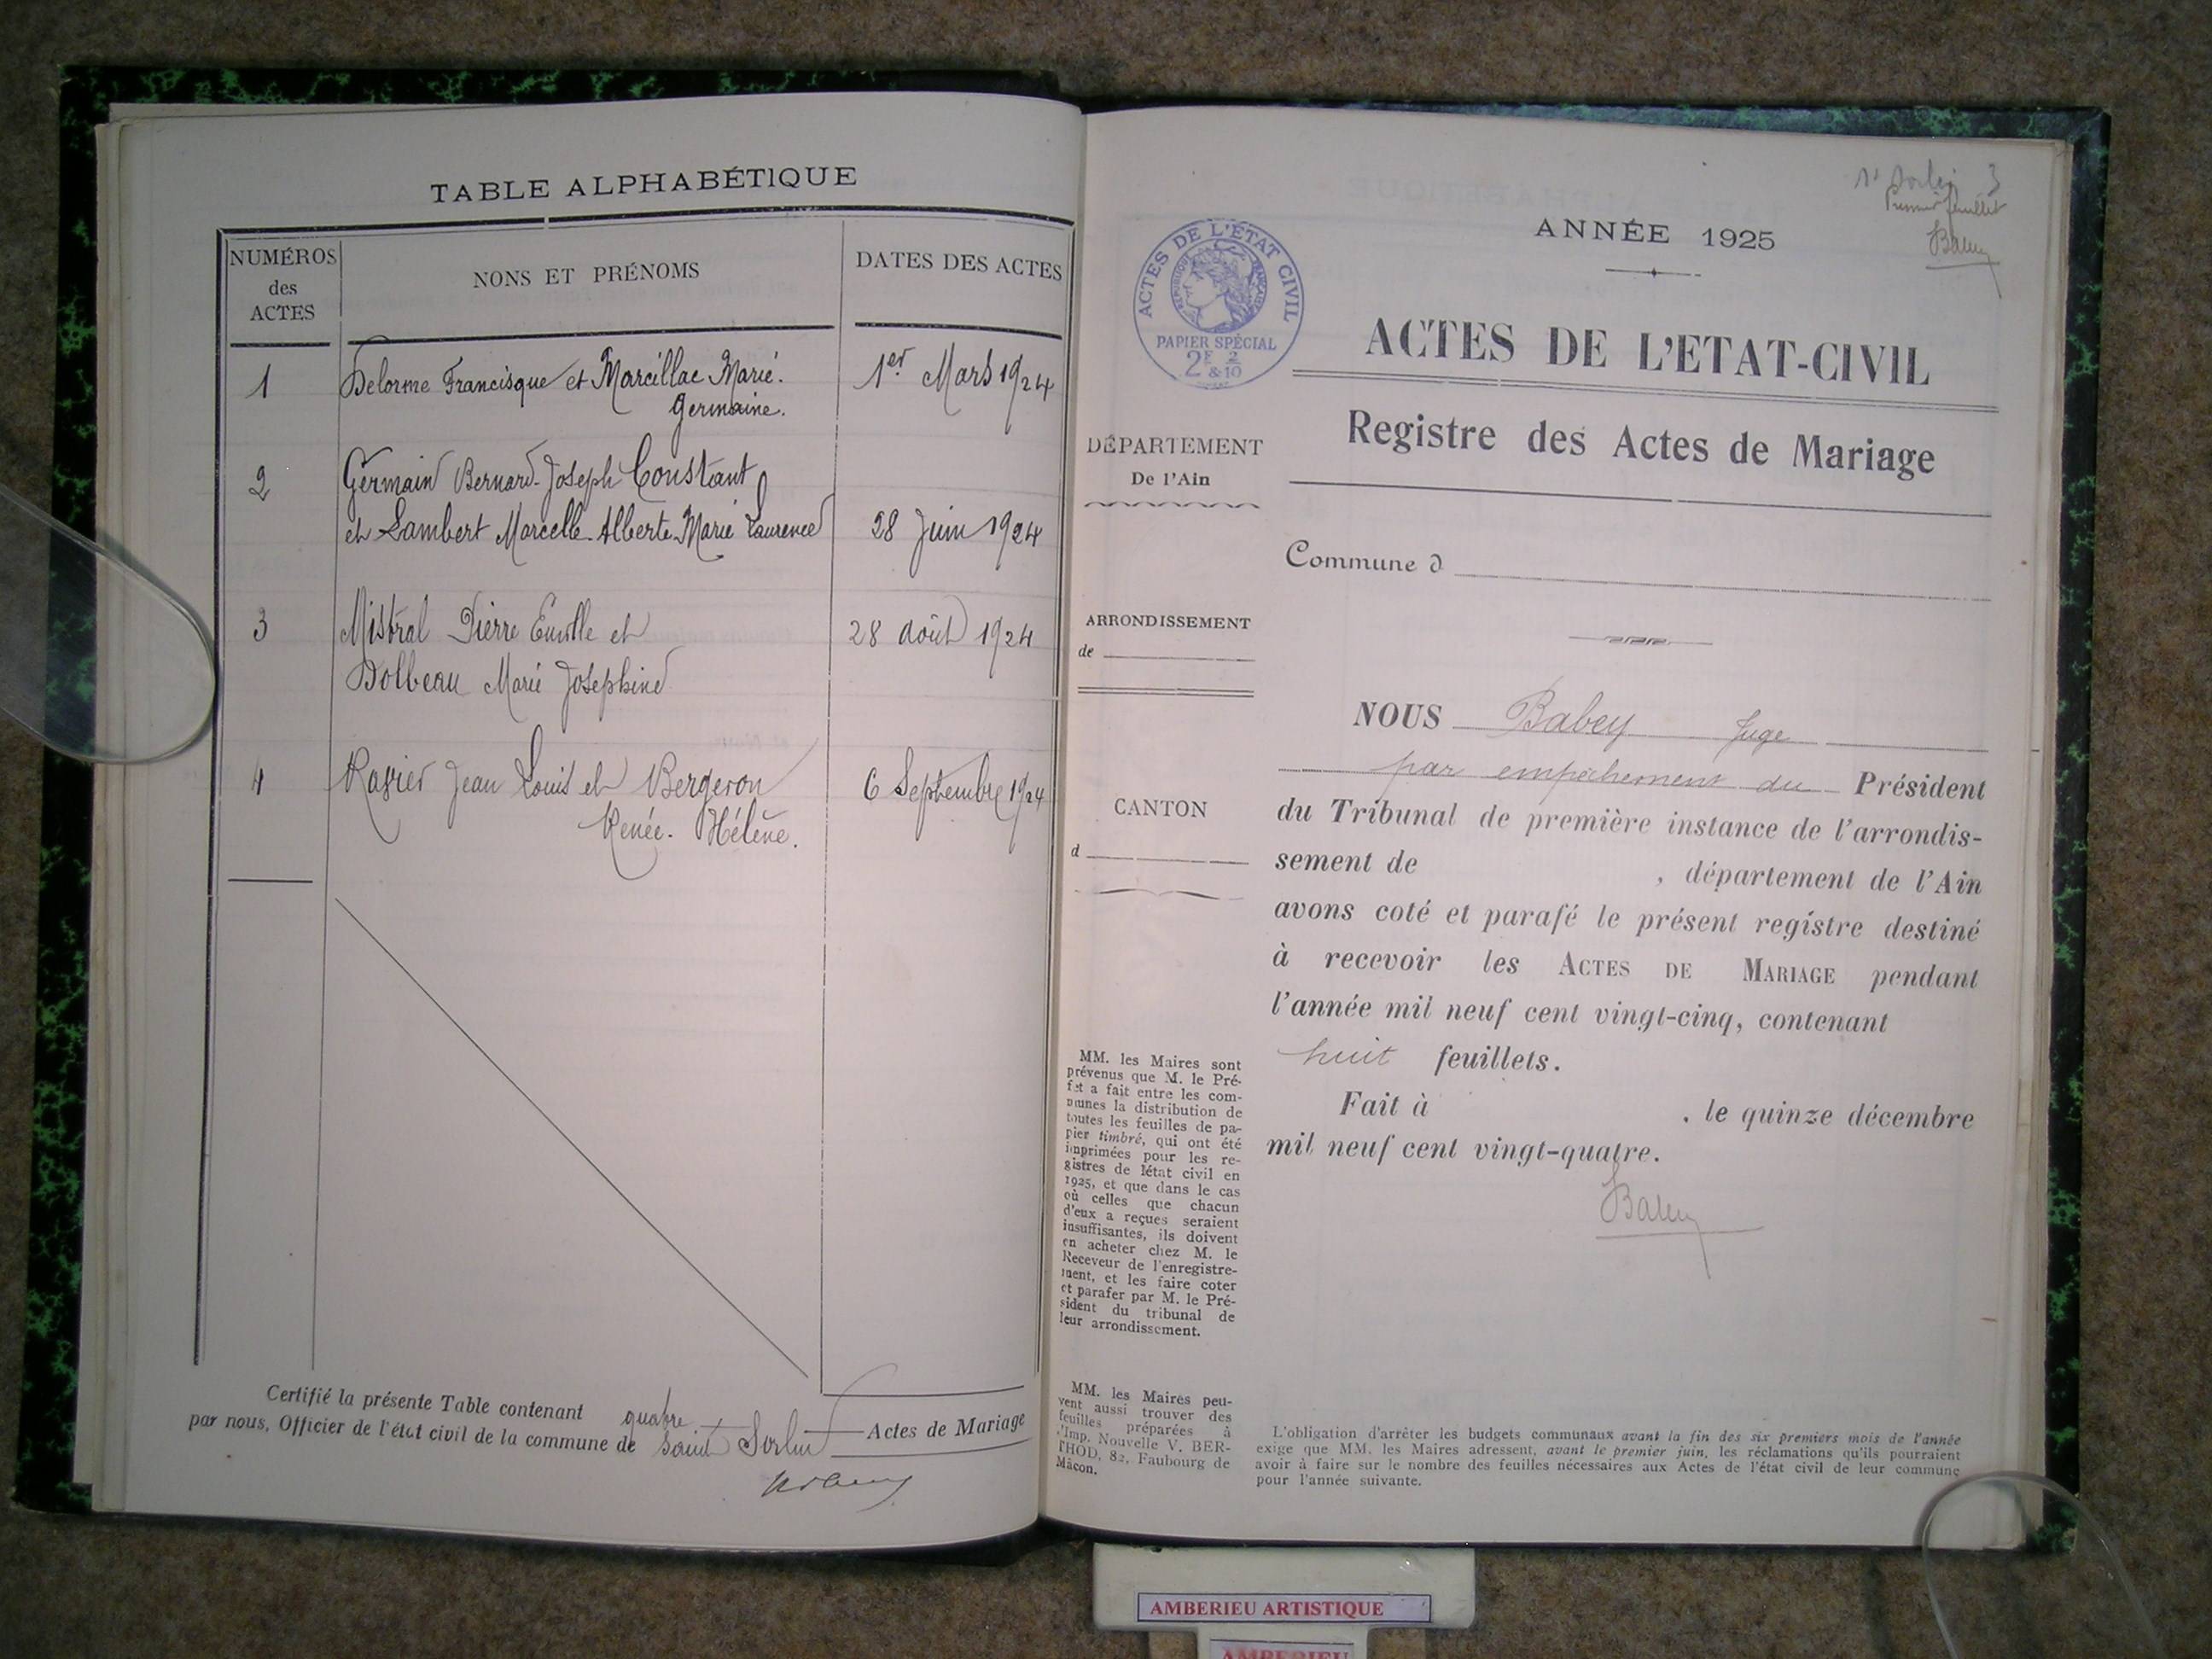 TABLE ALPHABÉTIQUE
NUMÉROS
des
ACTES
NONS ET PRÉNOMS
DATES DES ACTES
1
Delorme Francisque et Marcillac Marie.
Germaine.
1er Mars 1924
2
Germain Bernard-Joseph Constant
et Lambert Marcelle Alberte Marie Laurence
28 Juin 1924
3
Mistral Pierre Emille et
Dolbeau Marie Josephine
28 août 1924
4
Ravier Jean Louis et Bergeron
Renée. Hélène.
6 Septembre 1924
Certifié la présente Table contenant quatre Actes de Mariage
par nous, Officier de l'état civil de la commune de Saint Sorlin
3
Premier feuillet
Babey
ANNÉE 1925
ACTES DE L'ÉTAT CIVIL
RÉPUBLIQUE FRANÇAISE
PAPIER SPÉCIAL
2F & 2/10
ACTES DE L'ETAT-CIVIL
Registre des Actes de Mariage
DÉPARTEMENT
De l'Ain
Commune d
ARRONDISSEMENT
de
CANTON
d
NOUS Babey Juge
par empêchement du Président
du Tribunal de première instance de l'arrondis-
sement de , département de l'Ain
avons coté et parafé le présent registre destiné
à recevoir les ACTES DE MARIAGE pendant
l'année mil neuf cent vingt-cinq, contenant
huit feuillets.
Fait à , le quinze décembre
mil neuf cent vingt-quatre.
Babey
MM. les Maires sont
prévenus que M. le Pré-
fet a fait entre les com-
munes la distribution de
toutes les feuilles de pa-
pier timbré, qui ont été
imprimées pour les re-
gistres de l'état civil en
1925, et que dans le cas
où celles que chacun
d'eux a reçues seraient
insuffisantes, ils doivent
en acheter chez M. le
Receveur de l'enregistre-
ment, et les faire coter
et parafer par M. le Pré-
sident du tribunal de
leur arrondissement.
MM. les Maires peu-
vent aussi trouver des
feuilles préparées à
l'Imp. Nouvelle V. BER-
THOD, 82, Faubourg de
Mâcon.
L'obligation d'arrêter les budgets communaux avant la fin des six premiers mois de l'année
exige que MM. les Maires adressent, avant le premier juin, les réclamations qu'ils pourraient
avoir à faire sur le nombre des feuilles nécessaires aux Actes de l'état civil de leur commune
pour l'année suivante.
AMBERIEU ARTISTIQUE
AMBERIEU